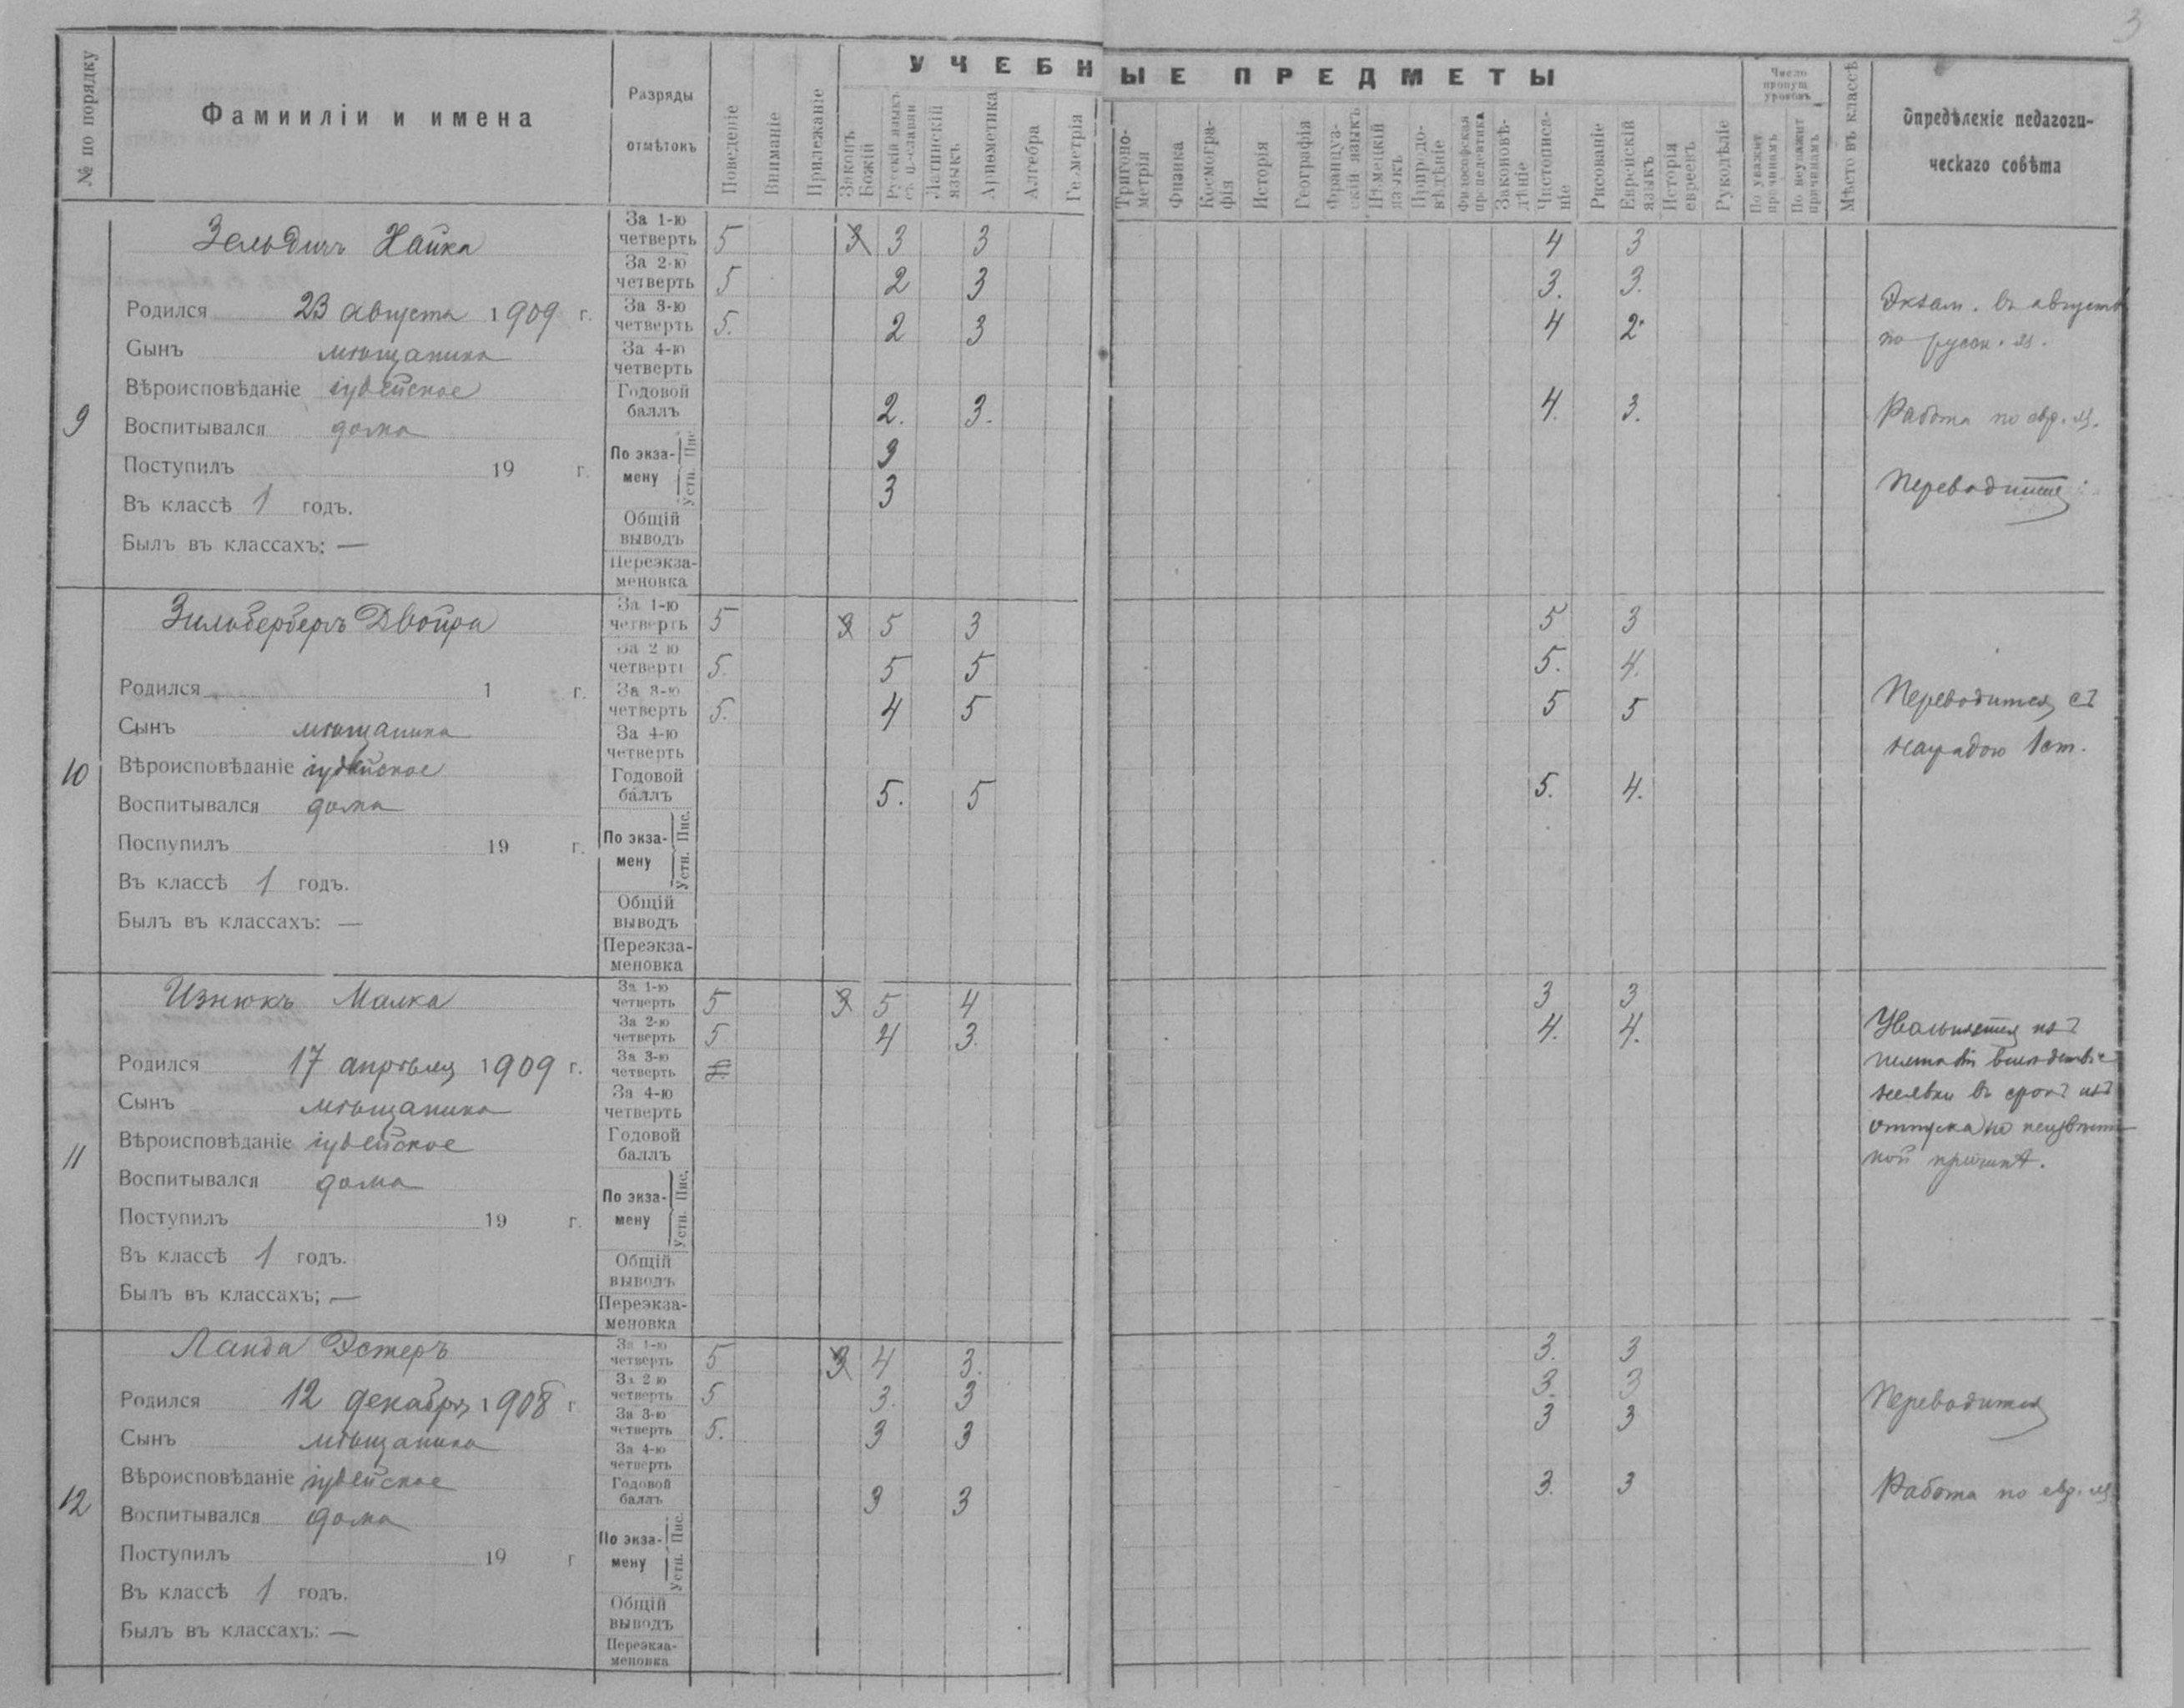 3
УЧЕБНЫЕ ПРЕДМЕТЫ
№ по порядку
Фамииліи и имена
Разряды
отмѣтокъ
Поведеніе
Вниманіе
Прилежаніе
Законъ Божій
Русскій языкъ съ ц.-славян
Латинскій языкъ
Ариѳметика
Алгебра
Геометрія
Тригоно-метрія
Физика
Космогра-фія
Исторія
Географія
Француз-скій языкъ
Нѣмецкій языкъ
Природо-вѣдѣніе
Философская пропедевтика
Законовѣ-дѣніе
Чистописа-ніе
Рисованіе
Еврейскій языкъ
Исторія евреевъ
Рукодѣліе
Число пропущ уроковъ
По уважит причинамъ
По неуважит причинамъ
Мѣсто въ классѣ
Опредѣленіе педагоги-
ческаго совѣта
9
Зельдичъ Хайка
Родился 23 августа 1909 г.
Сынъ мѣщанина
Вѣроисповѣданіе іудейское
Воспитывался дома
Поступилъ 19 г.
Въ классѣ 1 годъ.
Былъ въ классахъ: —
За 1-ю четверть 5 3 3 3 4 3
За 2-ю четверть 5 2 3 3. 3.
За 3-ю четверть 5. 2 3 4 2.
За 4-ю четверть
Годовой баллъ 2. 3. 4. 3.
По экза-мену Пис. 3
Устн. 3
Общій выводъ
Переэкза-меновка
Экзам. въ августѣ
по русск. яз.
Работа по евр. яз.
Переводится
10
Зильбербергъ Двойра
Родился 1 г.
Сынъ мѣщанина
Вѣроисповѣданіе іудейское
Воспитывался дома
Поспупилъ 19 г.
Въ классѣ 1 годъ.
Былъ въ классахъ: —
За 1-ю четверть 5 3 5 3 5 3
За 2-ю четверть 5. 5 5 5. 4.
За 3-ю четверть 5. 4 5 5 5
За 4-ю четверть
Годовой баллъ 5. 5 5. 4.
По экза-мену Пис. Устн.
Общій выводъ
Переэкза-меновка
Переводится съ
наградою 1 ст.
11
Изнюкъ Малка
Родился 17 апрѣля 1909 г.
Сынъ мѣщанина
Вѣроисповѣданіе іудейское
Воспитывался дома
Поступилъ 19 г.
Въ классѣ 1 годъ.
Былъ въ классахъ; —
За 1-ю четверть 5 3 5 4 3 3
За 2-ю четверть 5 4 3. 4. 4.
За 3-ю четверть
За 4-ю четверть
Годовой баллъ
По экза-мену Пис. Устн.
Общій выводъ
Переэкза-меновка
Увольняется изъ
вслѣдствіе
неявки въ срокъ изъ
отпуска по неизвѣст-
ной причинѣ.
12
Ланда Эстеръ
Родился 12 декабря 1908 г
Сынъ мѣщанина
Вѣроисповѣданіе іудейское
Воспитывался дома
Поступилъ 19 г
Въ классѣ 1 годъ.
Былъ въ классахъ: —
За 1-ю четверть 5 3 4 3. 3. 3
За 2-ю четверть 5 3. 3 3. 3
За 3-ю четверть 5. 3 3 3 3
За 4-ю четверть
Годовой баллъ 3 3 3. 3
По экза-мену Пис. Устн.
Общій выводъ
Переэкза-меновка
Переводится
Работа по евр. яз